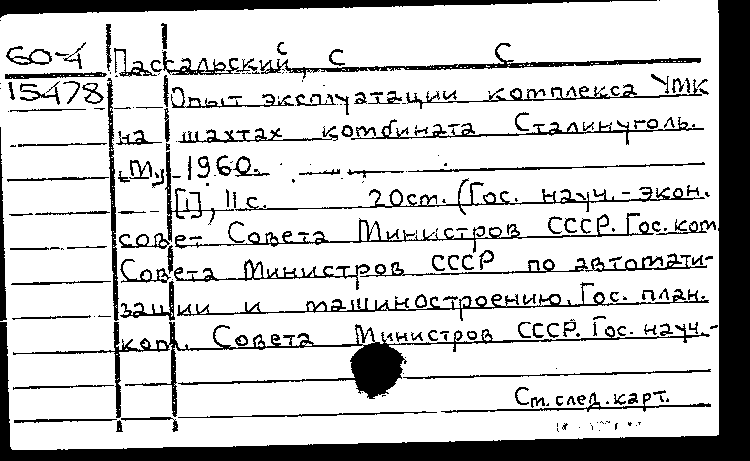 60-4 Пассальский, С С
15478 Опыт эксплуатации комплекса УМК
на шахтах комбината Сталинуголь.
[М.], 1960.
[1], 11 с. 20 см. (Гос. науч.-экон.
совет Совета Министров СССР. Гос. ком.
Совета Министров СССР по автомати-
зации и машиностроению. Гос. план.
ком. Совета Министров СССР. Гос. науч.-
См. след. карт.